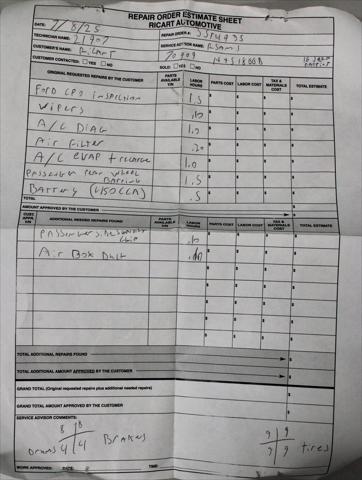 REPAIR ORDER ESTIMATE SHEET
RICART AUTOMOTIVE
DATE: 7/8/25
REPAIR ORDER #:
TECHNICIAN NAME: 21907
SERVICE ADVISOR NAME:
CUSTOMER'S NAME: Ricart
70909
CUSTOMER CONTACTED: YES NO
SOLD: YES NO
ORIGINAL REQUESTED REPAIRS BY THE CUSTOMER PARTS AVAILABLE Y/N LABOR HOURS PARTS COST LABOR COST TAX & MATERIALS COST TOTAL ESTIMATE
Ford CPO inspection 1.5
Wipers
A/C DIAG 1.0
Air Filter .20
A/C EVAP + recharge 1.0
Passenger rear wheel Bearing 1.5
Battery (450CCA) .5
TOTAL
AMOUNT APPROVED BY THE CUSTOMER
CUST. APPR. Y/N ADDITIONAL NEEDED REPAIRS FOUND PARTS AVAILABLE Y/N LABOR HOURS PARTS COST LABOR COST TAX & MATERIALS COST TOTAL ESTIMATE
Passenger side clip
Air Box Duct
TOTAL ADDITIONAL REPAIRS FOUND
TOTAL ADDITIONAL AMOUNT APPROVED BY THE CUSTOMER
GRAND TOTAL (Original requested repairs plus additional needed repairs)
GRAND TOTAL AMOUNT APPROVED BY THE CUSTOMER
SERVICE ADVISOR COMMENTS:
8 8 9 9
Drums 4 4 Brakes 9 9 tires
WORK APPROVED: DATE: TIME: